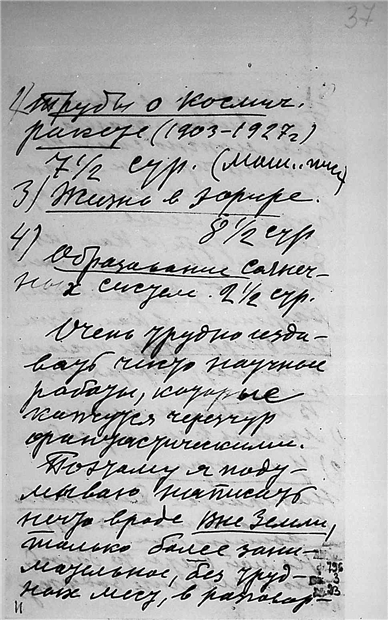 37
1) Труды о космич.
ракете (1903–1927г)
7 1/2 стр. (маш..
3) Жизнь в эфире.
8 1/2 стр
4)
Образование солнеч-
ных систем. 2 1/2 стр.
Очень трудно изда-
вать чисто научные
работы, которые
кажутся чересчур
фантастическими.
Поэтому я поду-
мываю написать
нечто вроде Вне Земли,
только более зани-
мательное, без труд-
ных мест, в разговор-